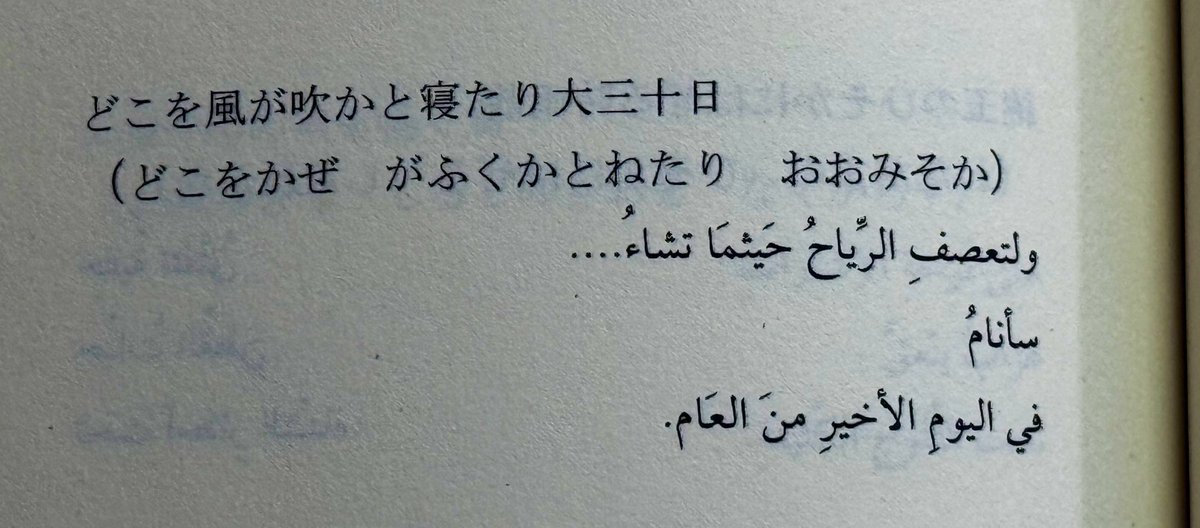 どこを風が吹かと寝たり大三十日
(どこをかぜ　がふくかとねたり　おおみそか)
ولتعصفِ الرِّياحُ حَيثمَا تشاءُ....
سأنامُ
في اليومِ الأخيرِ منَ العَام.